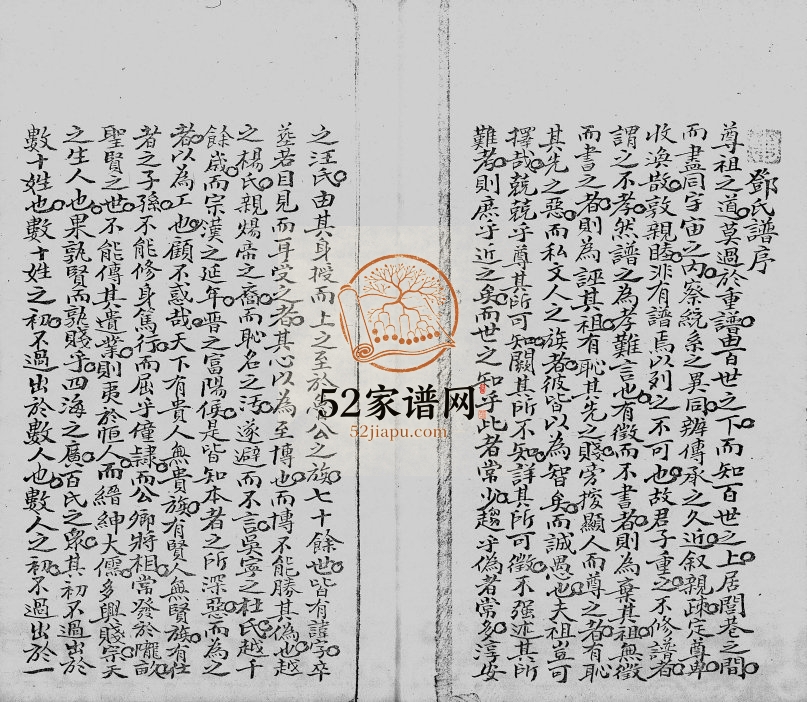 鄧氏譜序
尊祖之道莫過於重譜由百世之下而知百世之上居閭巷之間
而盡同宇宙之內察統系之異同辨傳承之久近叙親疎定尊卑
收渙散敦親睦非有譜焉以列之不可也故君子重之不修譜者
謂之不孝然譜之為孝難言也有徵而不書者則為棄其祖無徵
而書之者則為誣其祖有恥其先之賤旁援顯人而尊之者有恥
其先之惡而私文人之族者彼皆以為智矣而誠愚也夫祖豈可
擇哉兢兢乎尊其所可知闕其所不知詳其所可徵不强述其所
難考則庶乎近之矣而世之知乎此者常少趨乎偽者常多淳安
之汪氏由其身推而上之至於魯公之族七十餘世皆有諱字卒
塟若目見而耳受之者其心以為至博也而博不能勝其偽也越
之楊氏親煬帝之裔而恥名之汚遂避而不言吳寧之杜氏越千
餘歲而宗漢之延年晋之富陽侯是皆知本者之所深惡而為之
者以為工也顧不惑哉天下有貴人無貴族有賢人無賢族有仕
者之子孫不能修身篤行而屈乎僮隷而公卿將相常發於隴畝
聖賢之世不能傳其遺業則夷於恒人而縉紳大儒多興賤宗天
之生人也果孰賢而孰賤乎四海之廣百氏之衆其初不過出於
數十姓也數十姓之初不過出於數人也數人之初不過出於一
52家谱网
52jiapu.com